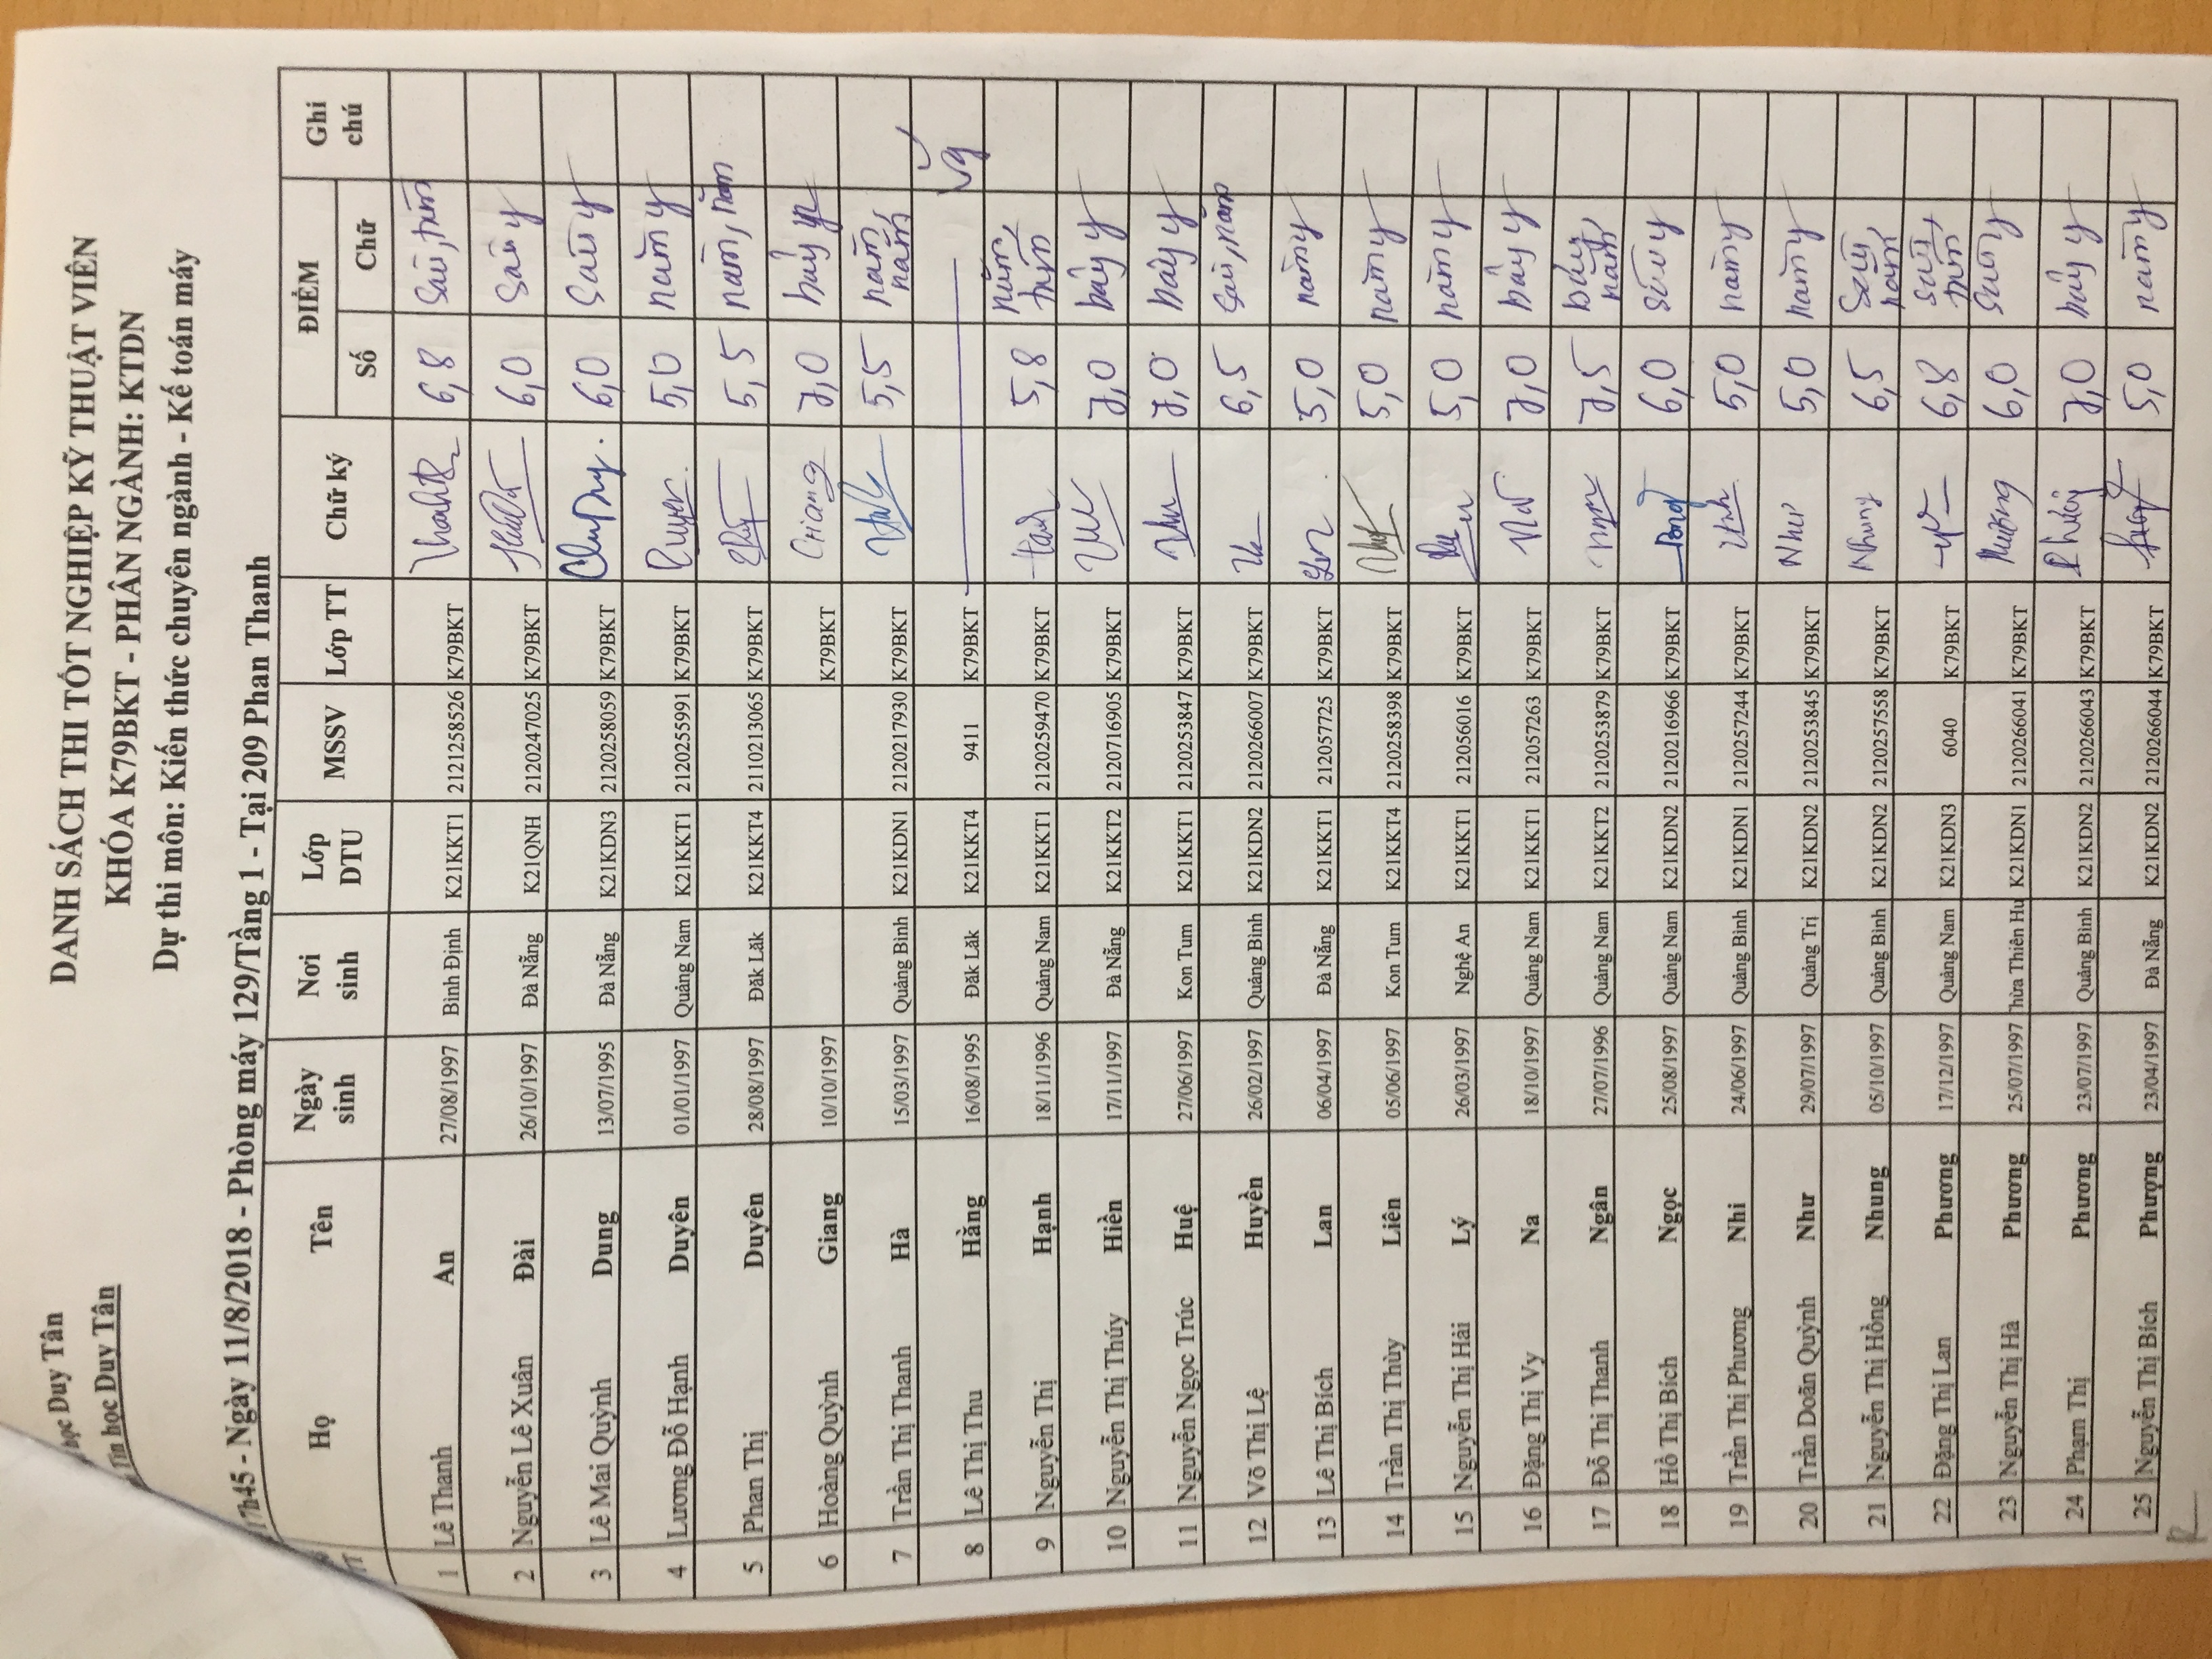 học Duy Tân
Tin học Duy Tân
DANH SÁCH THI TỐT NGHIỆP KỸ THUẬT VIÊN
KHÓA K79BKT - PHÂN NGÀNH: KTDN
Dự thi môn: Kiến thức chuyên ngành - Kế toán máy
17h45 - Ngày 11/8/2018 - Phòng máy 129/Tầng 1 - Tại 209 Phan Thanh
Họ Tên Ngày sinh Nơi sinh Lớp DTU MSSV Lớp TT Chữ ký ĐIỂM Ghi chú
Số Chữ
1 Lê Thanh An 27/08/1997 Bình Định K21KKT1 2121258526 K79BKT 6,8 Sáu, tám
2 Nguyễn Lê Xuân Đài 26/10/1997 Đà Nẵng K21QNH 2120247025 K79BKT 6,0 Sáu y
3 Lê Mai Quỳnh Dung 13/07/1995 Đà Nẵng K21KDN3 2120258059 K79BKT 6,0 Sáu y
4 Lương Đỗ Hạnh Duyên 01/01/1997 Quảng Nam K21KKT1 2120255991 K79BKT Duyên 5,0 năm y
5 Phan Thị Duyên 28/08/1997 Đăk Lăk K21KKT4 2110213065 K79BKT 5,5 năm, năm
6 Hoàng Quỳnh Giang 10/10/1997 K79BKT Giang 7,0 bảy y
7 Trần Thị Thanh Hà 15/03/1997 Quảng Bình K21KDN1 2120217930 K79BKT 5,5 năm, năm
8 Lê Thị Thu Hằng 16/08/1995 Đăk Lăk K21KKT4 9411 K79BKT Vg
9 Nguyễn Thị Hạnh 18/11/1996 Quảng Nam K21KKT1 2120259470 K79BKT 5,8 năm, tám
10 Nguyễn Thị Thúy Hiền 17/11/1997 Đà Nẵng K21KKT2 2120716905 K79BKT 7,0 bảy y
11 Nguyễn Ngọc Trúc Huệ 27/06/1997 Kon Tum K21KKT1 2120253847 K79BKT 7,0 bảy y
12 Võ Thị Lệ Huyền 26/02/1997 Quảng Bình K21KDN2 2120266007 K79BKT 6,5 Sáu, năm
13 Lê Thị Bích Lan 06/04/1997 Đà Nẵng K21KKT1 212057725 K79BKT Lan 5,0 năm y
14 Trần Thị Thùy Liên 05/06/1997 Kon Tum K21KKT4 2120258398 K79BKT 5,0 năm y
15 Nguyễn Thị Hải Lý 26/03/1997 Nghệ An K21KKT1 212056016 K79BKT 5,0 năm y
16 Đặng Thị Vy Na 18/10/1997 Quảng Nam K21KKT1 212057263 K79BKT 7,0 bảy y
17 Đỗ Thị Thanh Ngân 27/07/1996 Quảng Nam K21KKT2 2120253879 K79BKT 7,5 bảy, năm
18 Hồ Thị Bích Ngọc 25/08/1997 Quảng Nam K21KDN2 2120216966 K79BKT 6,0 sáu y
19 Trần Thị Phương Nhi 24/06/1997 Quảng Bình K21KDN1 2120257244 K79BKT 5,0 năm y
20 Trần Doãn Quỳnh Như 29/07/1997 Quảng Trị K21KDN2 2120253845 K79BKT Như 5,0 năm y
21 Nguyễn Thị Hồng Nhung 05/10/1997 Quảng Bình K21KDN2 2120257558 K79BKT Nhung 6,5 Sáu, năm
22 Đặng Thị Lan Phương 17/12/1997 Quảng Nam K21KDN3 6040 K79BKT 6,8 sáu, tám
23 Nguyễn Thị Hà Phương 25/07/1997 hừa Thiên Hu K21KDN1 2120266041 K79BKT Phương 6,0 Sáu y
24 Phạm Thị Phương 23/07/1997 Quảng Bình K21KDN2 2120266043 K79BKT Phương 7,0 bảy y
25 Nguyễn Thị Bích Phượng 23/04/1997 Đà Nẵng K21KDN2 2120266044 K79BKT 5,0 năm y